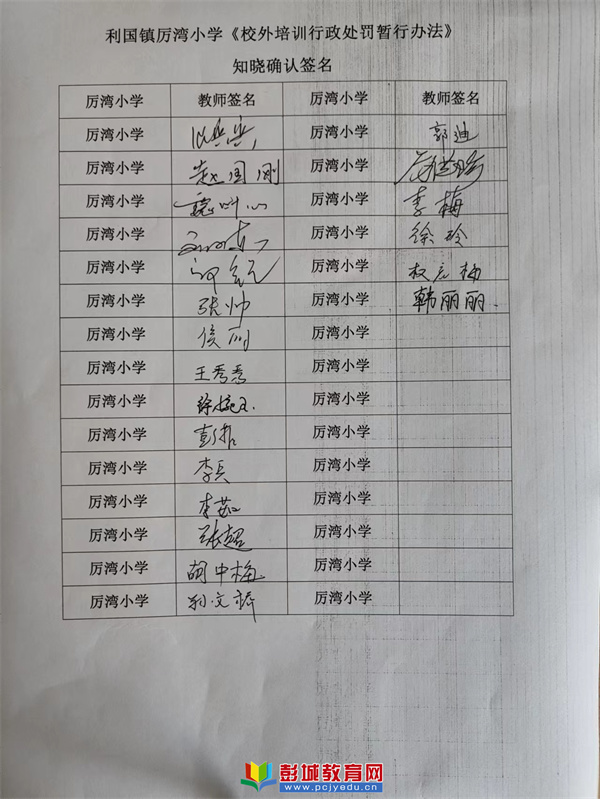 利国镇厉湾小学《校外培训行政处罚暂行办法》
知晓确认签名
厉湾小学 教师签名 厉湾小学 教师签名
厉湾小学 厉湾小学 郭迪
厉湾小学 赵国刚 厉湾小学
厉湾小学 厉湾小学 李梅
厉湾小学 厉湾小学 徐玲
厉湾小学 厉湾小学 权彦梅
厉湾小学 张帅 厉湾小学 韩丽丽.
厉湾小学 厉湾小学
厉湾小学 王秀秀 厉湾小学
厉湾小学 厉湾小学
厉湾小学 厉湾小学
厉湾小学 李兵 厉湾小学
厉湾小学 李茹 厉湾小学
厉湾小学 张超 厉湾小学
厉湾小学 胡中梅 厉湾小学
厉湾小学 厉湾小学
彭城教育网
www.pcjyedu.cn